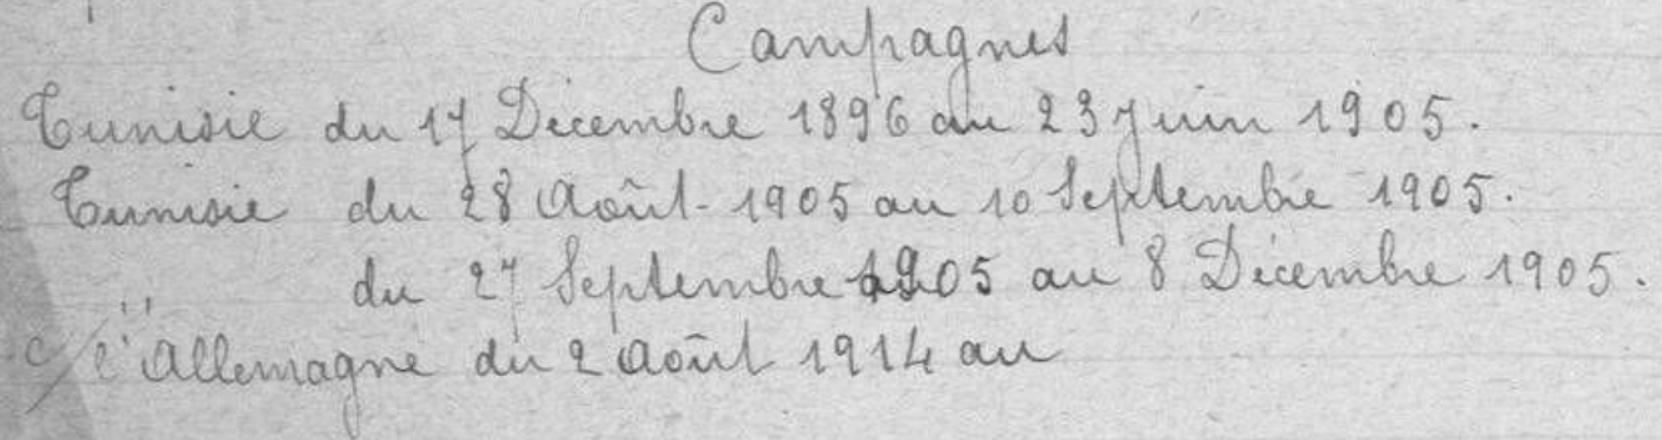 Campagnes
Tunisie du 17 Décembre 1896 au 23 Juin 1905.
Tunisie du 28 Août 1905 au 10 Septembre 1905.
" du 27 Septembre 1905 au 8 Décembre 1905.
c/ l'Allemagne du 2 Août 1914 au